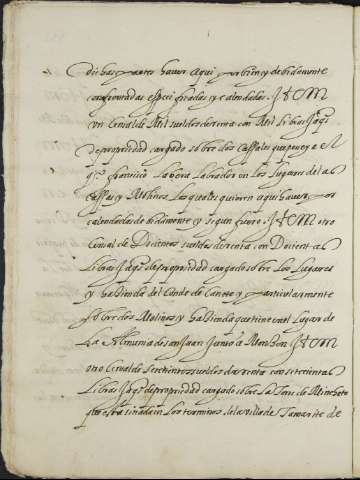 dichas partes haver aqui por bien y debidamente
confrontadas especificadas y calendadas. ITOM
un Censal de Mil sueldos de renta con Mil libras Jaqs
de propriedad cargado sobre dos Cassales que posey a el
qo francisco Labrador en los Lugares de las
Cassas y Molinos los quales quieren aqui haver por
calendados debidamente y segun fuero. ITOM otro
Censal de Docientos sueldos de renta con Docientas
Libras Jaqs de propriedad cargado sobre Los Lugares
y hazienda del Conde de y particularmente
sobre dos Molinos y hazienda que tiene en el Lugar de
La Almunia de san Juan Junto a Monzon ITOM
otro Censal de Setecientos sueldos de renta con setecientas
Libras Jaqs de propriedad cargado sobre La Torre de
que esta sitiada en Los terminos de la villa de Tamarite de